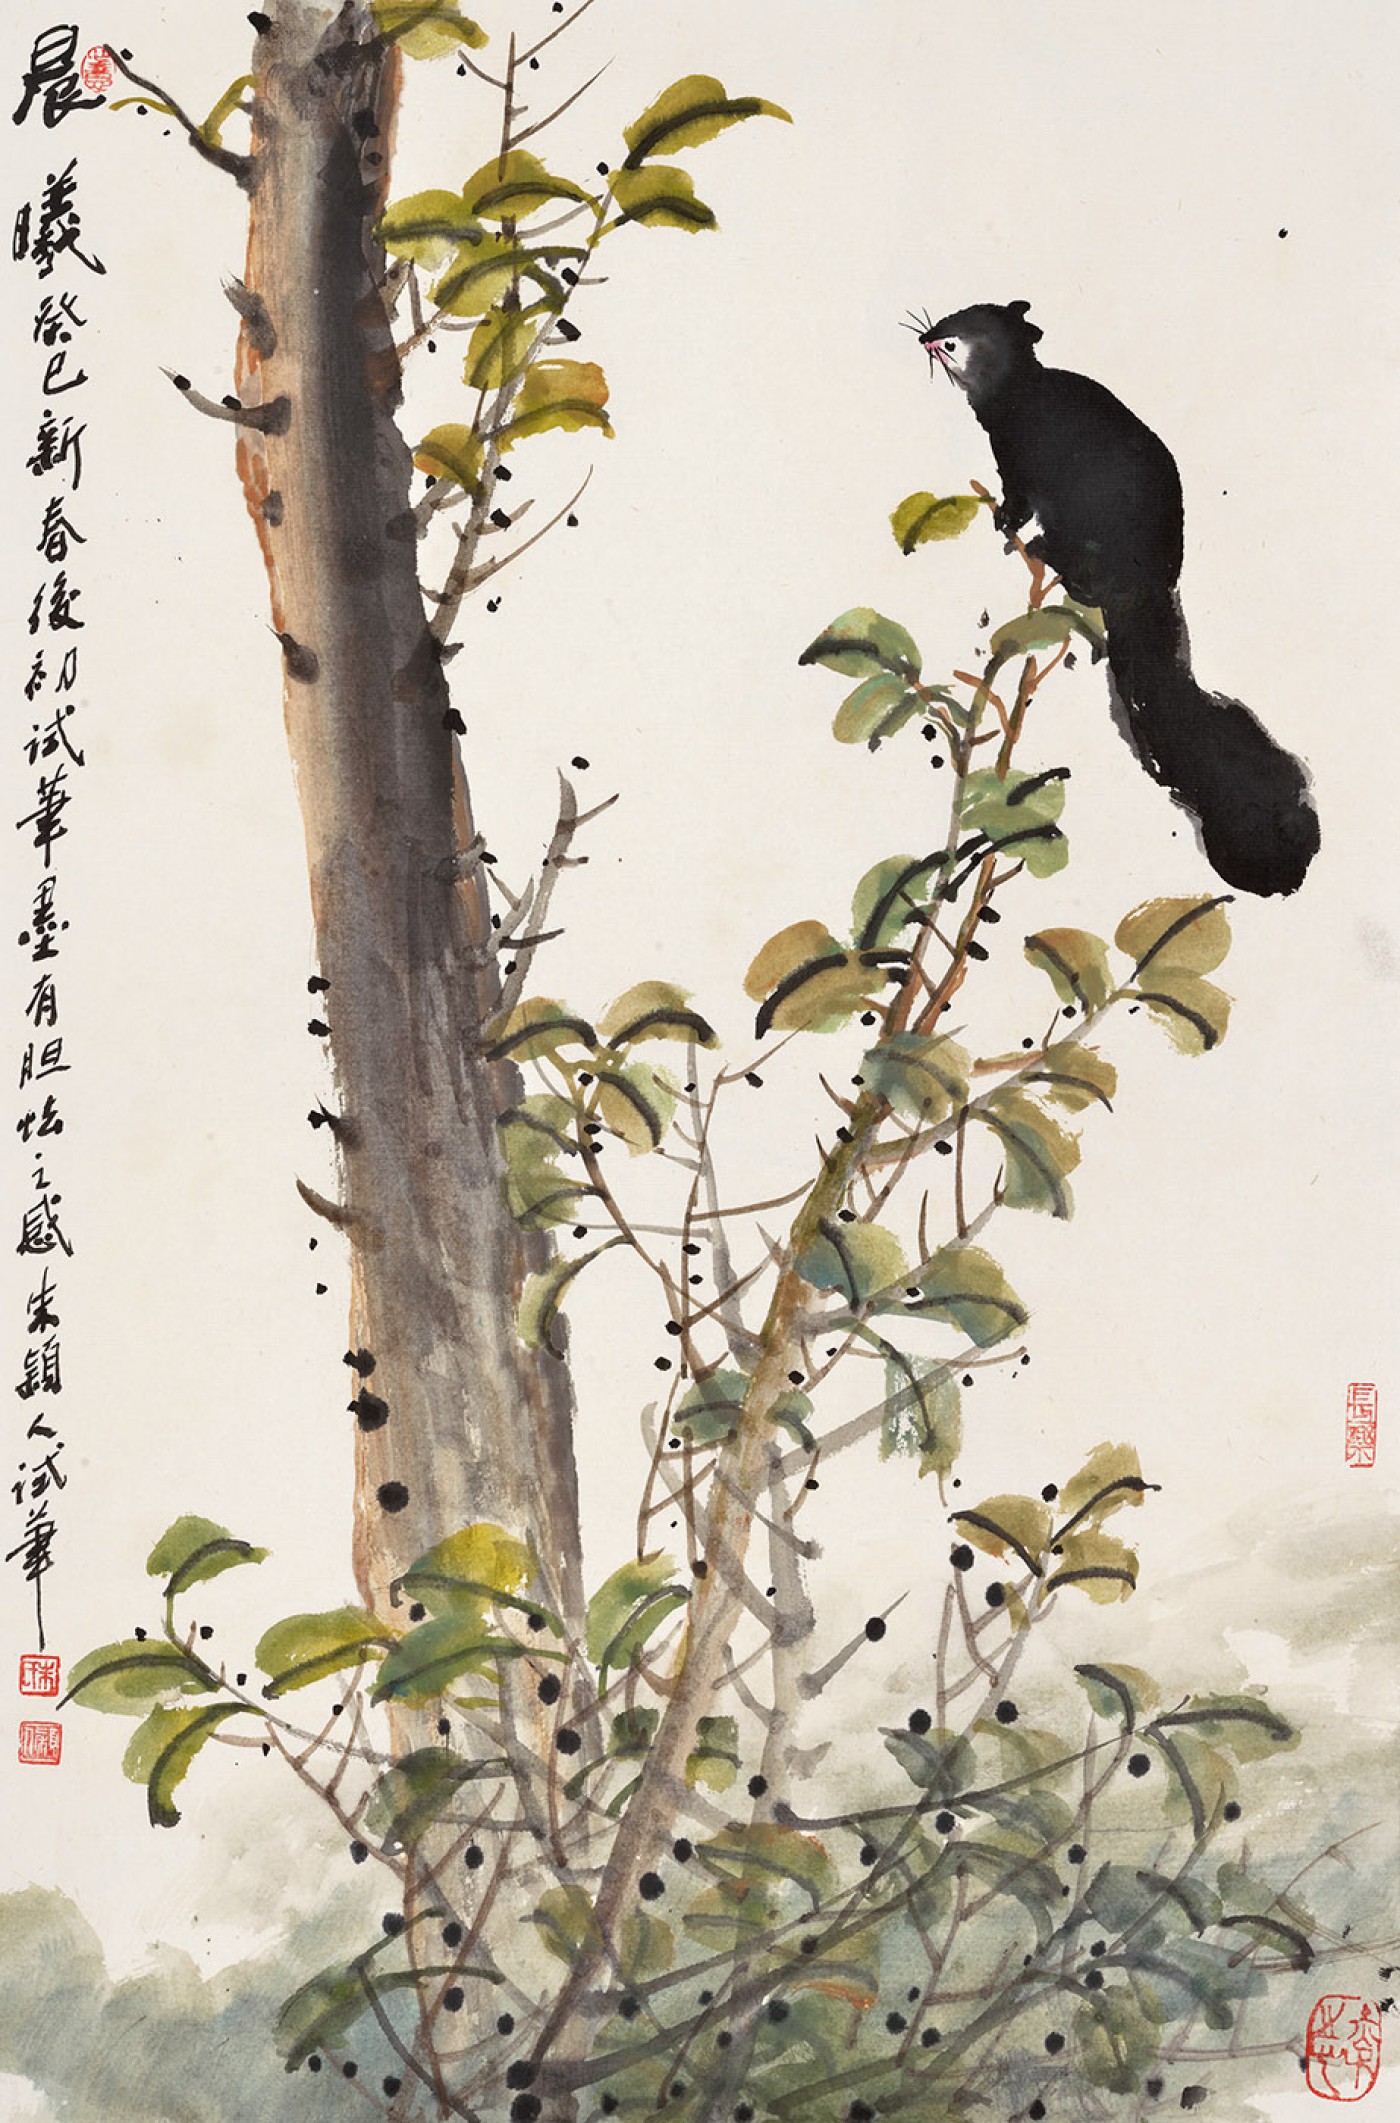 晨曦癸巳新春後初試筆墨有胆怯之感朱穎人試筆
長樂
朱
穎人